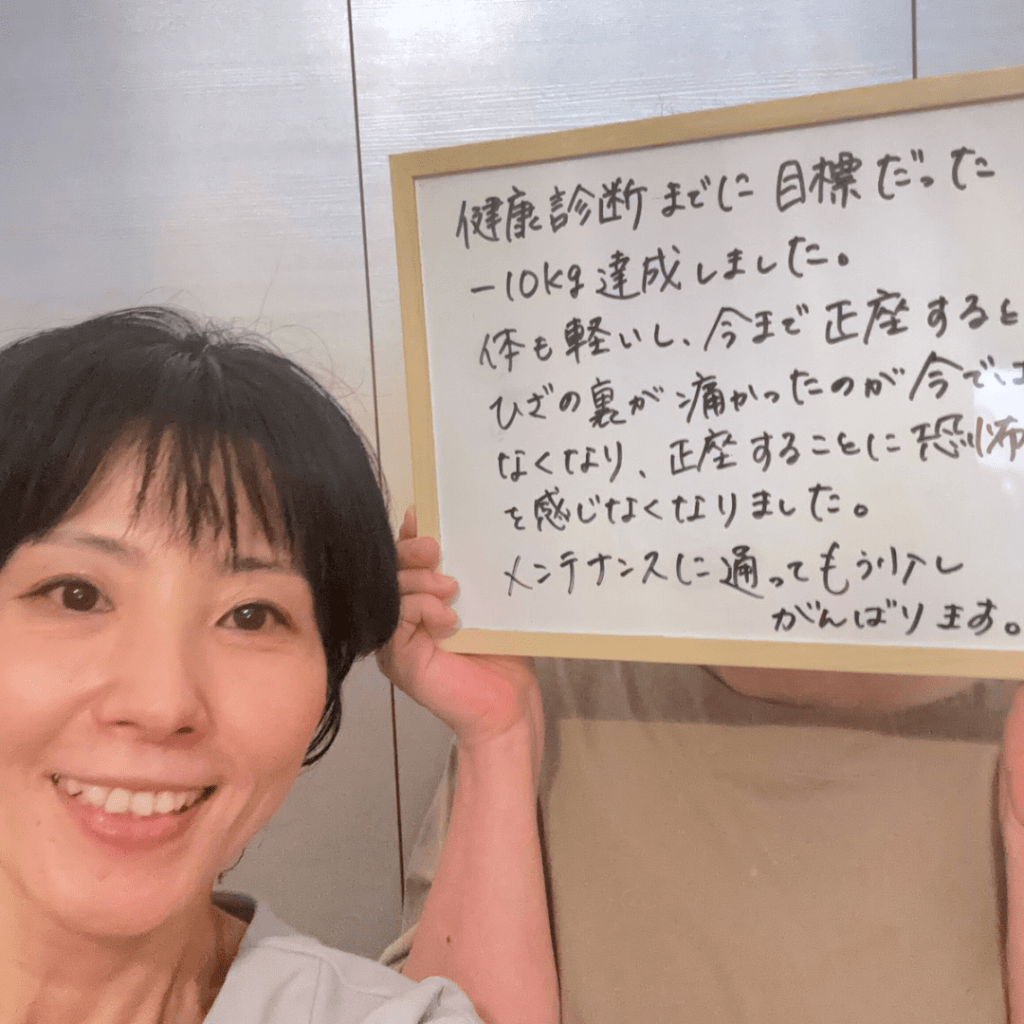 健康診断までに目標だった
-10kg達成しました。
体も軽いし、今まで正座すると
ひざの裏が痛かったのが今では
なくなり、正座することに恐怖
を感じなくなりました。
メンテナンスに通ってもう少し
がんばります。